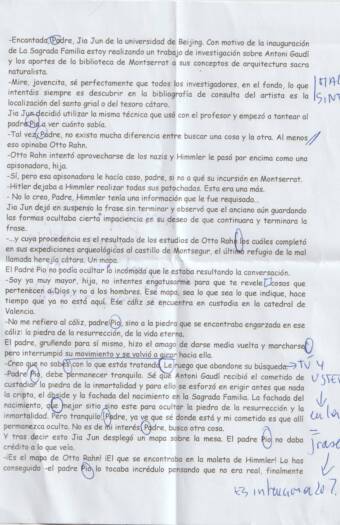 -Encantada Padre, Jia Jun de la universidad de Beijing. Con motivo de la inauguración
de La Sagrada Familia estoy realizando un trabajo de investigación sobre Antoni Gaudí
y los aportes de la biblioteca de Montserrat a sus conceptos de arquitectura sacra
naturalista.
-Mire, jovencita, sé perfectamente que todos los investigadores, en el fondo, lo que
intentáis siempre es descubrir en la bibliografía de consulta del artista es la
localización del santo grial o del tesoro cátaro.
Jia Jun decidió utilizar la misma técnica que usó con el profesor y empezó a tantear al
padre Pio a ver cuánto sabía.
-Tal vez, Padre, no exista mucha diferencia entre buscar una cosa y la otra. Al menos
eso opinaba Otto Rahn.
-Otto Rahn intentó aprovecharse de los nazis y Himmler le pasó por encima como una
apisonadora, hija.
-Sí, pero esa apisonadora le hacía caso, padre, si no a qué su incursión en Montserrat.
-Hitler dejaba a Himmler realizar todas sus patochadas. Esta era una más.
- No lo creo, Padre, Himmler tenía una información que le fue requisada...
Jia Jun dejó en suspenso la frase sin terminar y observó que el anciano aún guardando
las formas ocultaba cierta impaciencia en su deseo de que continuara y terminara la
frase.
-...y cuya procedencia es el resultado de los estudios de Otto Rahn los cuáles completó
en sus expediciones arqueológicas al castillo de Montsegur, el último refugio de la mal
llamada herejía cátara. Un mapa.
El Padre Pio no podía ocultar lo incómoda que le estaba resultando la conversación.
-Soy ya muy mayor, hija, no intentes engatusarme para que te revele cosas que
pertenecen a Dios y no a los hombres. Ese mapa, sea lo que sea lo que indique, hace
tiempo que ya no está aquí. Ese cáliz se encuentra en custodia en la catedral de
Valencia.
-No me refiero al cáliz, padre Pio, sino a la piedra que se encontraba engarzada en ese
cáliz: la piedra de la resurrección, de la vida eterna.
El padre, gruñendo para sí mismo, hizo el amago de darse media vuelta y marcharse
pero interrumpió su movimiento y se volvió a girar hacia ella.
-Creo que no sabes con lo que estás tratando. Le ruego que abandone su búsqueda. → TÚ Y
-Padre Pio, debe permanecer tranquilo. Sé que Antoni Gaudí recibió el cometido de
custodiar la piedra de la inmortalidad y para ello se esforzó en erigir antes que nada
la cripta, el ábside y la fachada del nacimiento en la Sagrada Familia. La fachada del
nacimiento, qué mejor sitio sino este para ocultar la piedra de la resurrección y la
inmortalidad. Pero tranquilo, Padre, ya ve que sé donde está y mi cometido es que allí
permanezca oculto. No es de mi interés, Padre, busco otra cosa.
Y tras decir esto Jia Jun desplegó un mapa sobre la mesa. El padre Pio no daba
crédito a lo que veía.
-¡Es el mapa de Otto Rahn! ¡El que se encontraba en la maleta de Himmler! Lo has
conseguido -el padre Pio lo tocaba incrédulo pensando que no era real, finalmente
en la
frase